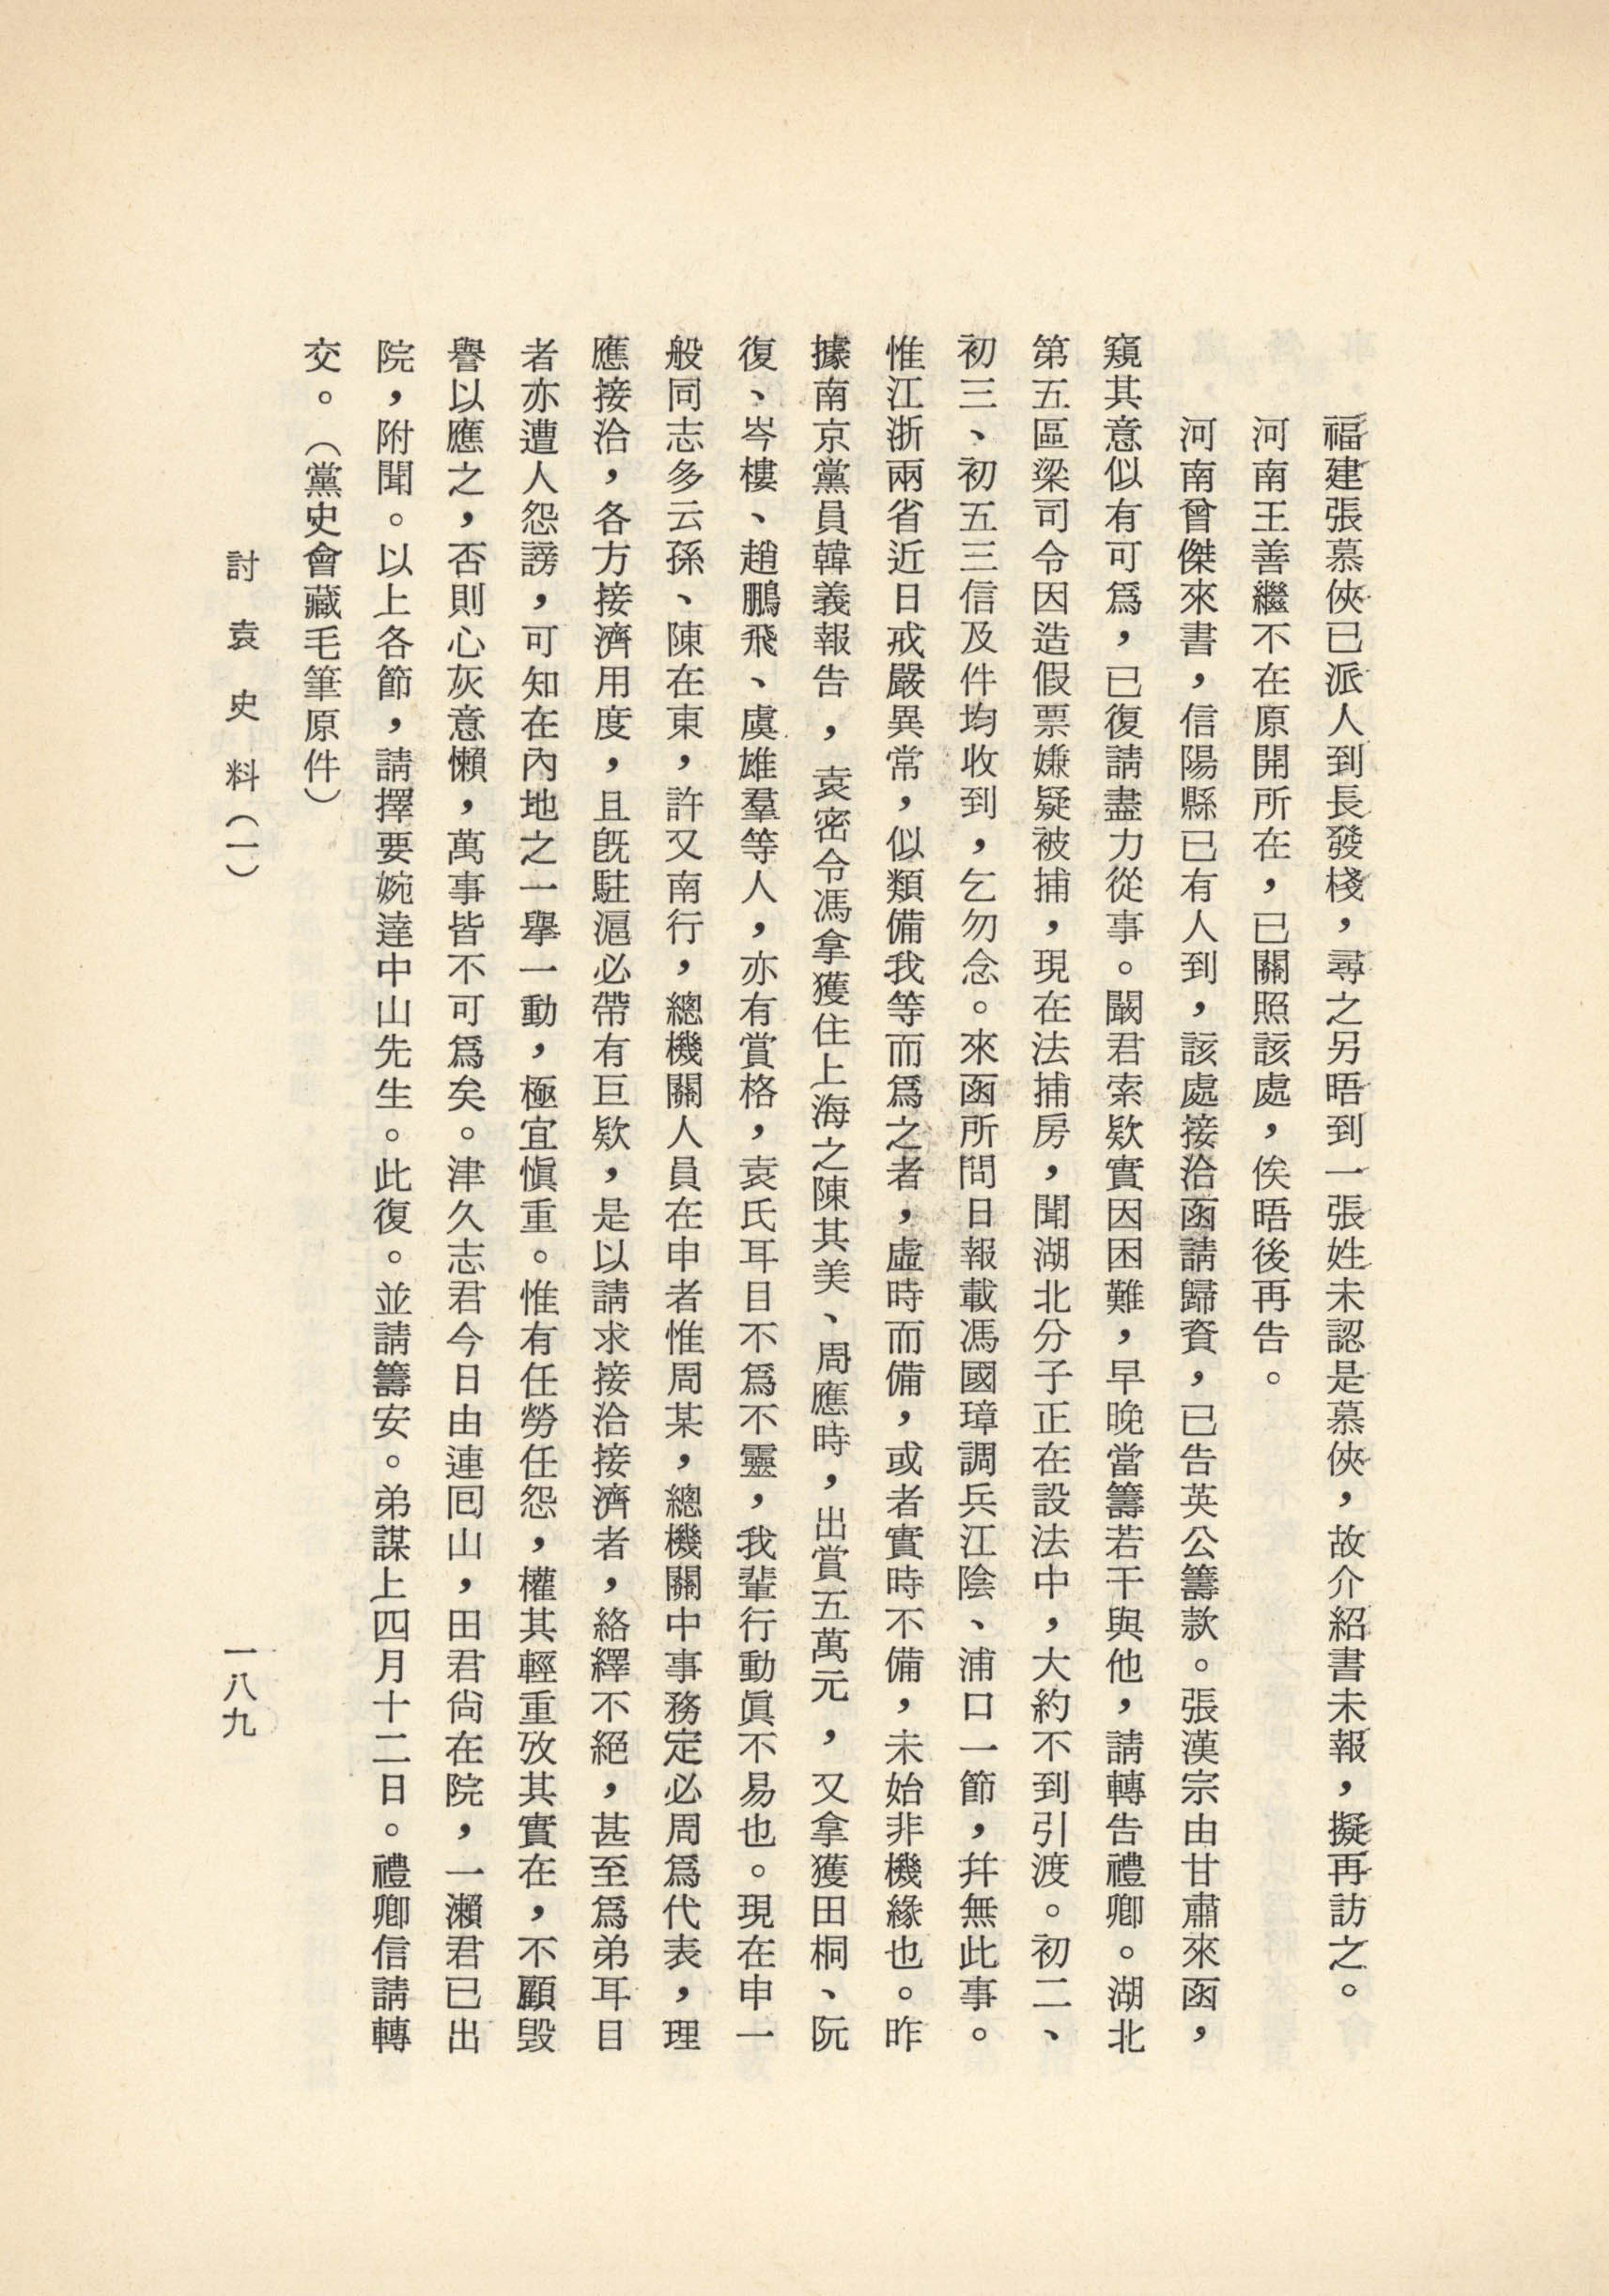 福建張慕俠已派人到長發棧，尋之另晤到一張姓未認是慕俠，故介紹書未報，擬再訪之。
河南王善繼不在原開所在，已關照該處，俟晤後再告。
河南曾傑來書，信陽縣已有人到，該處接洽函請歸賚，已告英公籌款。張漢宗由甘肅來函，
窺其意似有可爲，已復請盡力從事。闞君索欵實因困難，早晚當籌若干與他，請轉告禮卿。湖北
第五區梁司令因造假票嫌疑被捕，現在法捕房，聞湖北分子正在設法中，大約不到引渡。初二、
初三、初五三信及件均收到，乞勿念。來函所問日報載馮國璋調兵江陰、浦口一節，幷無此事。
惟江浙兩省近日戒嚴異常，似類備我等而爲之者，虛時而備，或者實時不備，未始非機緣也。昨
據南京黨員韓義報告，袁密令馮拿獲住上海之陳其美、周應時，出賞五萬元，又拿獲田桐、阮
復、岑樓、趙鵬飛、虞雄羣等人，亦有賞格，袁氏耳目不爲不靈，我輩行動眞不易也。現在申一
般同志多云孫、陳在東，許又南行，總機關人員在申者惟周某，總機關中事務定必周爲代表，理
應接洽，各方接濟用度，且旣駐滬必帶有巨欵，是以請求接洽接濟者，絡繹不絕，甚至爲弟耳目
者亦遭人怨謗，可知在內地之一舉一動，極宜愼重。惟有任勞任怨，權其輕重攷其實在，不顧毀
譽以應之，否則心灰意懶，萬事皆不可爲矣。津久志君今日由連囘山，田君尙在院，一瀨君已出
院，附聞。以上各節，請擇要婉達中山先生。此復。並請籌安。弟謀上四月十二日。禮卿信請轉
交。（黨史會藏毛筆原件）
討袁史料（一）
一八九